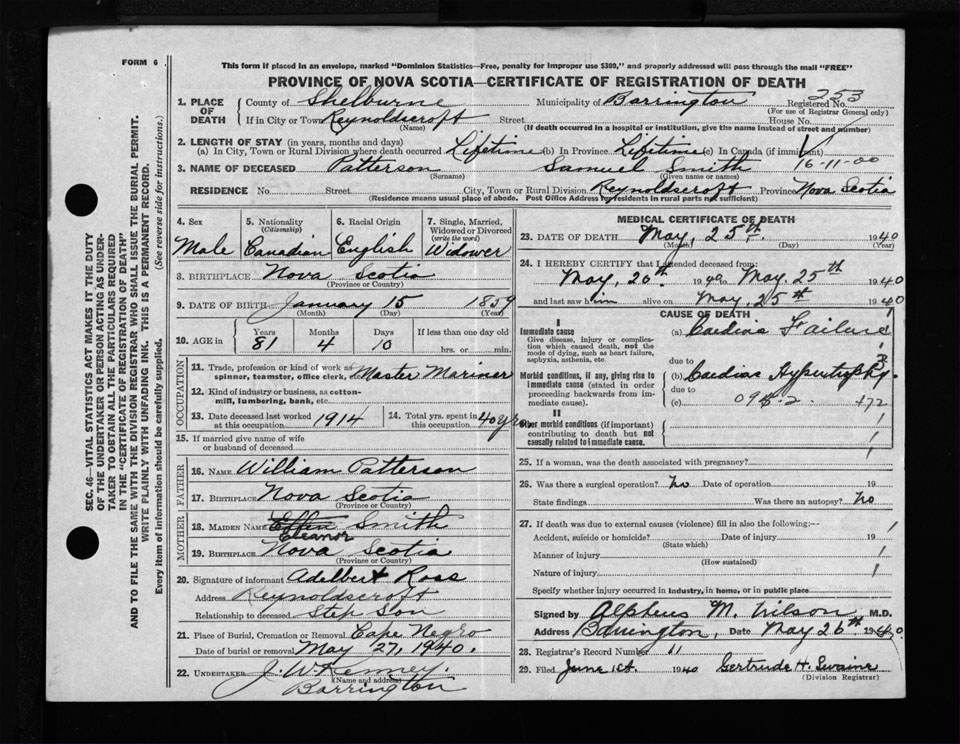 FORM 6
This form if placed in an envelope, marked "Dominion Statistics—Free, penalty for improper use $300," and properly addressed will pass through the mail "FREE"
PROVINCE OF NOVA SCOTIA—CERTIFICATE OF REGISTRATION OF DEATH
253
1. PLACE OF DEATH County of Shelburne Municipality of Barrington Registered No.
(For use of Registrar General only)
If in City or Town Reynoldscroft Street House No.
(Name) (If death occurred in a hospital or institution, give the name instead of street and number)
2. LENGTH OF STAY (in years, months and days)
(a) In City, Town or Rural Division where death occurred Lifetime (b) In Province Lifetime (c) In Canada (if immigrant)
16-11-00
3. NAME OF DECEASED Patterson Samuel Smith
(Surname) (Given name or names)
RESIDENCE No. Street City, Town or Rural Division Reynoldscroft Province Nova Scotia
(Residence means usual place of abode. Post Office Address for residents in rural parts not sufficient)
4. Sex 5. Nationality (Citizenship) 6. Racial Origin 7. Single, Married, Widowed or Divorced (write the word)
Male Canadian English Widower
8. BIRTHPLACE Nova Scotia
(Province or Country)
9. DATE OF BIRTH January 15 1859
(Month) (Day) (Year)
10. AGE in Years Months Days If less than one day old
81 4 10 hrs. or min.
OCCUPATION
11. Trade, profession or kind of work as spinner, teamster, office clerk, etc. Master Mariner
12. Kind of industry or business, as cotton-mill, lumbering, bank, etc.
13. Date deceased last worked at this occupation 1914 14. Total yrs. spent in this occupation 40 yrs
15. If married give name of wife or husband of deceased
FATHER
16. NAME William Patterson
17. BIRTHPLACE Nova Scotia
(Province or Country)
MOTHER
18. MAIDEN NAME Effen Smith
Eleanor
19. BIRTHPLACE Nova Scotia
(Province or Country)
20. Signature of informant Adelbert Ross
Address Reynoldscroft
Relationship to deceased Step Son
21. Place of Burial, Cremation or Removal Cape Negro
Date of burial or removal May 27, 1940.
22. UNDERTAKER J. W. Kenney.
(Name and address)
Barrington
MEDICAL CERTIFICATE OF DEATH
23. DATE OF DEATH May, 25th 1940
(Month) (Day) (Year)
24. I HEREBY CERTIFY that I attended deceased from:
May, 20th 1940 to May. 25th 1940
and last saw him alive on May. 25th 1940
CAUSE OF DEATH
I
Immediate cause (a) Cardiac Failure
Give disease, injury or complication which caused death, not the mode of dying, such as heart failure, asphyxia, asthenia, etc.
due to
Morbid conditions, if any, giving rise to immediate cause (stated in order proceeding backwards from immediate cause). (b) Cardiac Hypertrophy.
due to
(c)
II
Other morbid conditions (if important) contributing to death but not causally related to immediate cause.
25. If a woman, was the death associated with pregnancy?
26. Was there a surgical operation? no Date of operation 19
State findings Was there an autopsy? no
27. If death was due to external causes (violence) fill in also the following:—
Accident, suicide or homicide? Date of injury 19
(State which)
Manner of injury
(How sustained)
Nature of injury
Specify whether injury occurred in industry, in home, or in public place
Signed by Alpheus M. Wilson M.D.
Address Barrington, Date May 26th 1940
28. Registrar's Record Number 11
29. Filed June 1st. 1940 Gertrude H. Swaine
(Division Registrar)
SEC. 46—VITAL STATISTICS ACT MAKES IT THE DUTY OF THE UNDERTAKER OR PERSON ACTING AS UNDERTAKER TO OBTAIN ALL THE PARTICULARS REQUIRED IN THE "CERTIFICATE OF REGISTRATION OF DEATH" AND TO FILE THE SAME WITH THE DIVISION REGISTRAR WHO SHALL ISSUE THE BURIAL PERMIT.
WRITE PLAINLY WITH UNFADING INK. THIS IS A PERMANENT RECORD.
Every item of information should be carefully supplied. (See reverse side for instructions.)